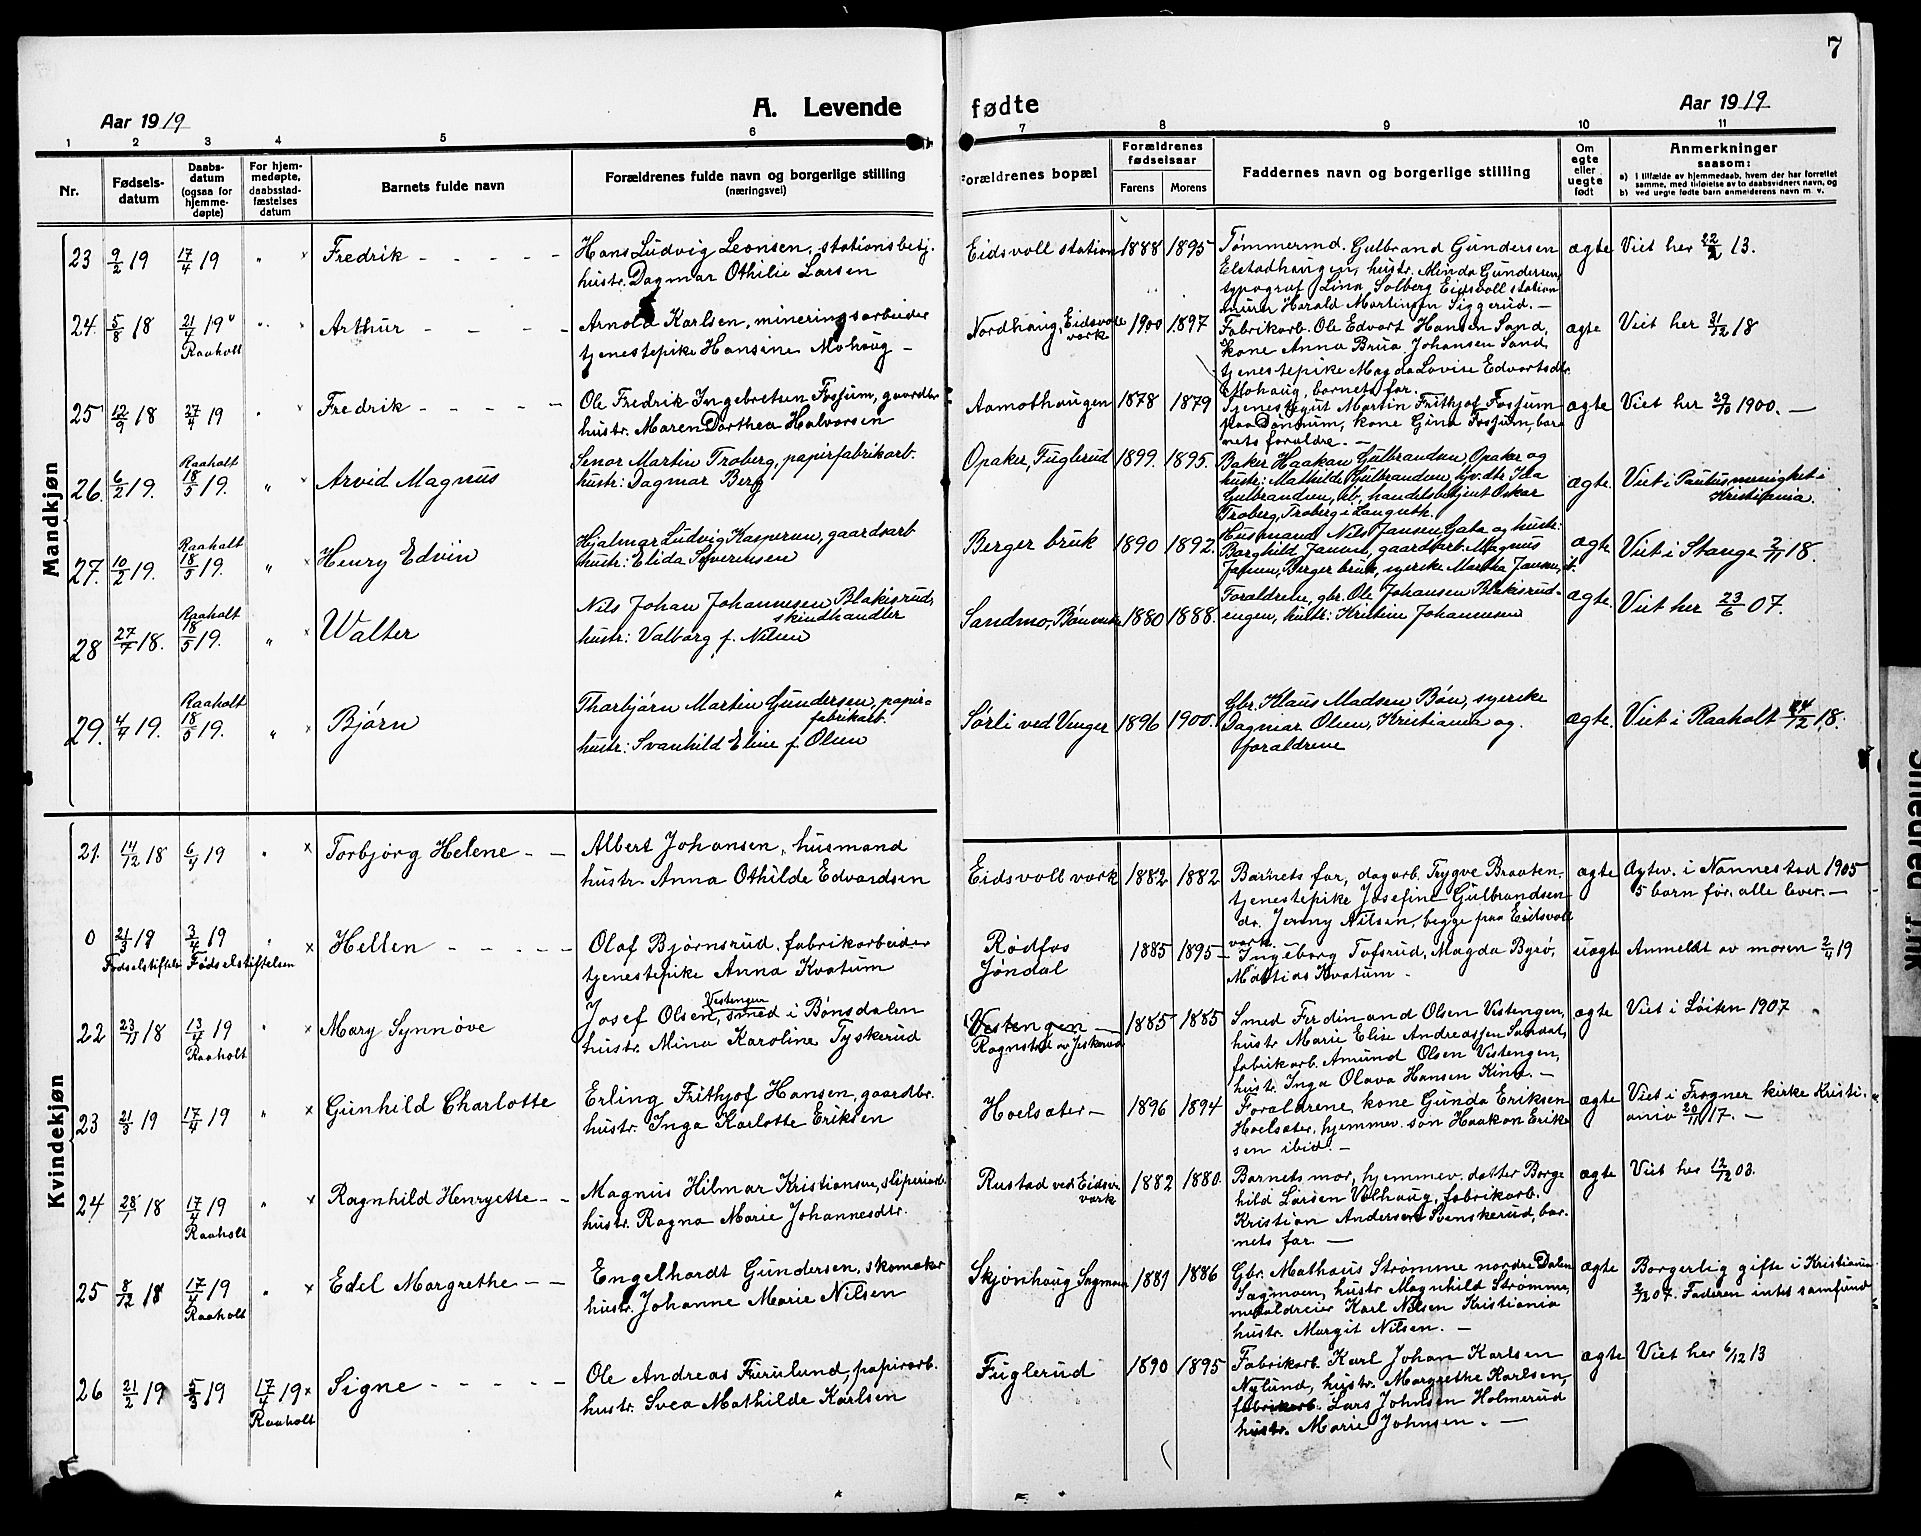 7
Aar 1919
A. Levende
fødte
Aar 1919
1 2 3 4 5 6 7 8 9 10 11
Nr.
Fødsels-
datum
Daabs-
datum
(ogsaa for
hjemme-
døpte)
For hjem-
medøpte,
daabsstad-
fæstelses
datum
Barnets fulde navn
Forældrenes fulde navn og borgerlige stilling
(næringsvei)
Forældrenes bopæl
Forældrenes
fødselsaar
Farens Morens
Faddernes navn og borgerlige stilling
Om
egte
eller
uegte
født
Anmerkninger
saasom:
a) I tilfælde av hjemmedaab, hvem der har forrettet
samme, med tilføielse av to daabsvidners navn, og
b) ved uegte fødte barn anmelderens navn m. v.
Mandkjøn
23 9/2 19 17/4 19 " × Fredrik - - - - -
Hans Ludvig Leonsen, stationsbetj.
hustr. Dagmar Othilie Larsen
Eidsvoll station 1888 1895
Tømmermd. Gulbrand Gundersen
Elstadhaugen, hustr. Minda Gundersen,
typograf Lina Solberg Eidsvoll station
murer Harald Martinsen Siggerud. —
ægte Viet her 22/2 13.
24. 5/8 18 21/4 19 " × Arthur - - - -
Raaholt
Arnold Karlsen, mineringsarbeider
tjenestepike Hansine Mohaug —
Nordhaug, Eidsvolds
værk 1900 1897
Fabrikarb. Ole Edvart Hansen Sand,
kone Anna Brua Johansen Sand,
tjenestepike Magda Lovise Edvartsdtr.
Mohaug, barnets far.
ægte Viet her 31/12 18
25 12/9 18 27/4 19 " × Fredrik - - - - -
Ole Fredrik Ingebretsen Fosjum, gaardbr.
hustr. Maren Dorthea Halvorsen
Aamothaugen 1878 1879
Tjenestegut Martin Frithjof Fosjum
paa Dønnum, kone Gina Fosjum, bar
nets forældre. —
ægte Viet her 29/10 1900. —
26. 6/2 19. Raaholt
18/5 19. " × Arvid Magnus
Senor Martin Troberg, papirfabrikarb.
hustr: Dagmar Berg
Opaker, Fuglerud 1899. 1895.
Baker Haakan Gulbrandsen, Opaker og
hustr: Mathilde Gulbrandsen, gv.dtr Ida
Gulbrandsen, ib., handelsbetjent Oskar
Troberg, Troberg i Langseth.
ægte. Viet i Paulus menighet i
Kristiania.
27. 10/2 19. Raaholt
18/5 19. " × Henry Edvin
Hjalmar Ludvig Kaspersen, gaardsarb
hustr: Elida Severinsen
Berger bruk 1890 1892.
Husmand Nils Jansen Gata og hustr:
Borghild Jansen, gaardsarb. Magnus
Jansen, Berger bruk, syerske Martha Jansen, it.
ægte Viet i Stange 2/11 18.
28 27/7 18. Raaholt
18/5 19. " × Walter
Nils Johan Johannesen Blakisrud,
skindhandler
hustr: Valborg f. Nilsen
Sandmo, Bønsmoen 1880 1888.
Forældrene, gbr. Ole Johansen Blakisrud-
engen, hustr: Kristine Johannesen
ægte. Viet her 23/6 07.
29. 4/4 19. Raaholt
18/5 19. " × Bjørn
Thorbjørn Martin Gundersen, papir-
fabrikarb.
hustr: Svanhild Eline f. Olsen
Sørli ved Venger 1896 1900.
Gbr. Klaus Madsen Bøn, syerske
Dagmar Olsen, Kristiania og
forældrene
ægte. Viet i Raaholt 24/12 18.
Kvindekjøn
21. 14/12 18 6/4 19 " × Torbjørg Helene - -
Albert Johansen, husmand
hustr. Anna Othilde Edvardsen
Eidsvoll værk 1882 1882
Barnets far, dagarb. Trygve Braaten,
tjenestepike Josefine Gulbrandsen
do. Jenny Nilsen, begge paa Eidsvoll
værk.
ægte Agtev. i Nannestad 1905
5 barn før, alle lever. —
0 21/3 19 3/4 19 " × Hellen - - - - -
Fødselstiftelsen Fødselstiftelsen
Olaf Bjørnsrud, fabrikarbeider
tjenestepike Anna Kvatum
Rødfos
Jøndal
1885 1895 —
Ingeborg Tofsrud, Magda Byrø,
Mattias Kvatum —
uægte Anmeldt av moren 2/4 19
22 23/11 18 13/4 19 " × Mary Synnøve
Raaholt
Josef Olsen, Vestengen smed i Bønsdalen
hustr. Mina Karoline Tyskerud
Vestengen —
1885 1885
Smed Ferdinand Olsen Vestengen,
hustr. Marie Elise Andreassen Sundat,
fabrikarb. Amund Olsen Vestengen,
hustr. Inga Olava Hansen Kind. —
ægte Viet i Løiten 1907
23 21/3 19 17/4 19 " × Gunhild Charlotte
Erling Frithjof Hansen, gaardbr.
hustr. Inga Karlotte Eriksen
Hoelsæter — 1896 1894
Forældrene, kone Gunda Eriksen
Hoelsæter, hjemmev. søn Haakon Erik-
sen ibid. —
ægte Viet i Frogner kirke Kristi-
ania 20/11 17. —
24 28/7 18 17/4 19 " × Ragnhild Henryette - -
Raaholt
Magnus Hilmar Kristiansen, sliperiarb.
hustr. Ragna Marie Johannesdtr.
Rustad ved Eidsv.
værk 1882 1880.
Barnets mor, hjemmev. datter Borg-
hild Larsen Vølhaug, fabrikarb.
Kristian Andersen Svenskerud, bar-
nets far. —
ægte Viet her 12/12 03.
25 8/12 18 17/4 19 " × Edel Margrethe - -
Raaholt
Engelhardt Gundersen, skomaker
hustr. Johanne Marie Nilsen
Skjønhaug Sagmoen 1881 1886
Gbr. Mathæus Strømme nordre Dalen
Sagmoen, hustr. Magnhild Strømme,
metaldreier Karl Nilsen Kristiania
hustr. Margit Nilsen. —
ægte Borgerlig gifte i Kristiania
2/12 07. Faderen intet samfund
26 21/2 19 5/3 19 17/4 19 × Signe - - - - -
Raaholt
Ole Andreas Furulund, papirarb.
hustr. Svea Mathilde Karlsen
Fuglerud 1890 1895
Fabrikarb. Karl Johan Karlsen
Nylund, hustr. Margrethe Karlsen,
fabrikarb. Lars Johnsen Holmerud
hustr. Marie Johnsen. —
ægte Viet her 6/12 13